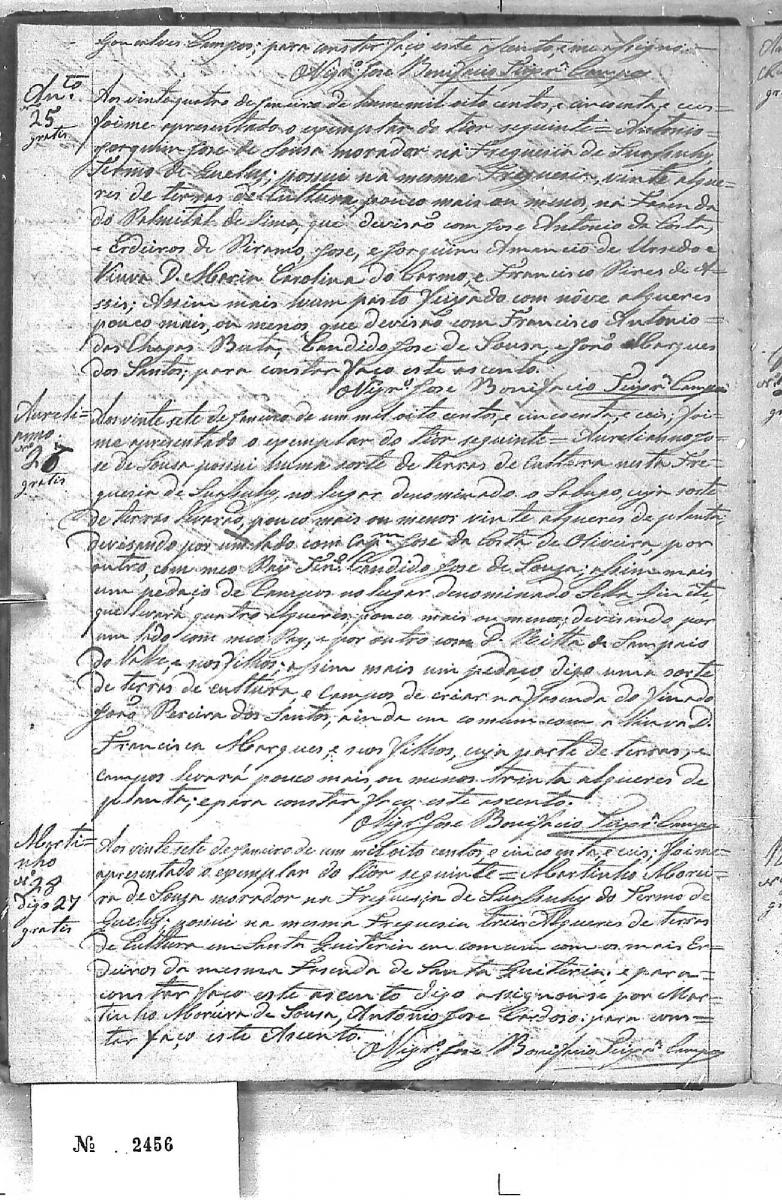 Gonçalves Campos; para constar faço este asento, e me assigno.
O Vigrº. Jose Bonifacio Campos
Anto.
nº
25
gratis
Aos vinte quatro de Janeiro de hum mil oito centos, e cincoenta, e ceis
foi me apresentado o exemplar do tior seguinte = Antonio
Joaquim Jose de Sousa morador na Freguesia de
Termo de Queluz; posui na mesma Freguesia, vinte alque=
res de terras de Cultura, pouco mais ou menos, na Fazenda
do Palmital de Sima, que devisão com Jose Antonio da Costa,
e Erdeiros de Jose, e Joaquim Amancio de e
Viuva D. Maria Carolina do Carmo, e Francisco Pires de A=
ssis; Assim mais hum pasto com nove alqueres
pouco mais, ou menos, que devisão com Francisco Antonio
das Chagas Candido Jose de Sousa, e João Marques
dos Santos; para constar faço este ascento.
O Vigrº. Jose Bonifacio Campos
Aureli=
anno
nº
26
gratis
Aos vinte sete de Janeiro de um mil oito centos, e cincoenta, e ceis; foi=
me apresentado o exemplar do tior seguinte = Aurelianno Jo=
se de Sousa posui huma sorte de terras de Cultura nesta Fre=
guesia de no lugar denominado o cuja sorte
de terras levarão, pouco mais ou menos vinte alqueres de planta,
devisando por um lado com Capm. Jose da Costa de Oliveira, por
outro, com meo Pay Tene. Candido Jose de Souza; assim mais
um pedaço de Campos no lugar denominado
que levará quatro alqueres, pouco mais ou menos; devisando por
um lado com meo Pay, e por outro com D. Ritta de Sampaio
do Valle e seos Filhos; assim mais um pedaço digo uma sorte
de terras de cultura e Campos de criar na Fasenda do
João Pereira dos Santos, ainda em comum com a Viuva D.
Francisca Marques e seos Filhos, cuja parte de terras, e
campos levará pouco mais, ou menos trinta alqueres de
planta; e para constar faço este ascento.
O Vigrº. Jose Bonifacio Campos
Marti=
nho
nº
28
digo 27
gratis
Aos vinte sete de Janeiro de um mil oito centos, e cincoenta, e ceis; foi me
apresentado o exemplar do tior seguinte = Martinho Morei=
ra de Souza morador na Freguesia de do Termo de
Queluz; posui na mesma Freguesia Alqueres de terras
de Cultura em Santa Quiteria em comum com os mais Er=
deiros da mesma Fasenda de Santa Quiteria; e para
constar faço este ascento digo assignou se por Mar=
tinho Moreira de Sousa, Antonio Jose Cardoso: para cons=
tar faço este Ascento.
O Vigrº. Jose Bonifacio Campos
Nº 2456